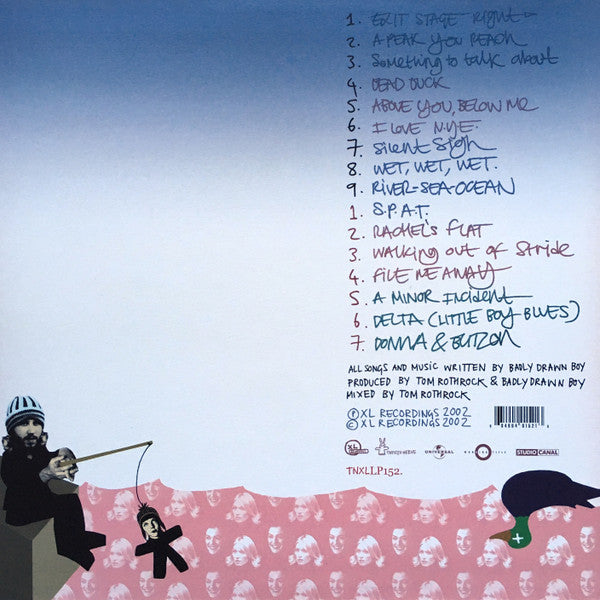 1. EXIT STAGE Right
2. A PEAK YOU REACH
3. Something to talk about
4. DEAD DUCK
5. ABOVE YOU, BELOW ME
6. I LOVE N.Y.E.
7. Silent Sigh
8. WET, WET, WET.
9. RIVER-SEA-OCEAN
1. S.P.A.T.
2. RACHEL'S FLAT
3. WALKING OUT OF STRIDE
4. FILE ME AWAY
5. A MINOR INCIDENT
6. DELTA (LITTLE BOY BLUES)
7. DONNA & BLITZEN
ALL SONGS AND MUSIC WRITTEN BY BADLY DRAWN BOY
PRODUCED BY TOM ROTHROCK & BADLY DRAWN BOY
MIXED BY TOM ROTHROCK
℗ XL RECORDINGS 2002
© XL RECORDINGS 2002
XL TWISTED NERVE UNIVERSAL WORKING TITLE STUDIO CANAL
TNXLLP152.